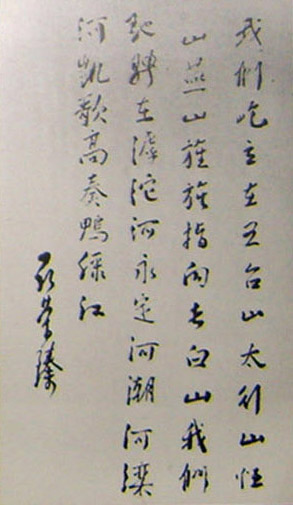 我們屹立在五台山太行山恒
山燕山旌旗指向长白山我們
馳騁在滹沱河永定河潮河灤
河凱歌高奏鴨绿江
聂荣臻